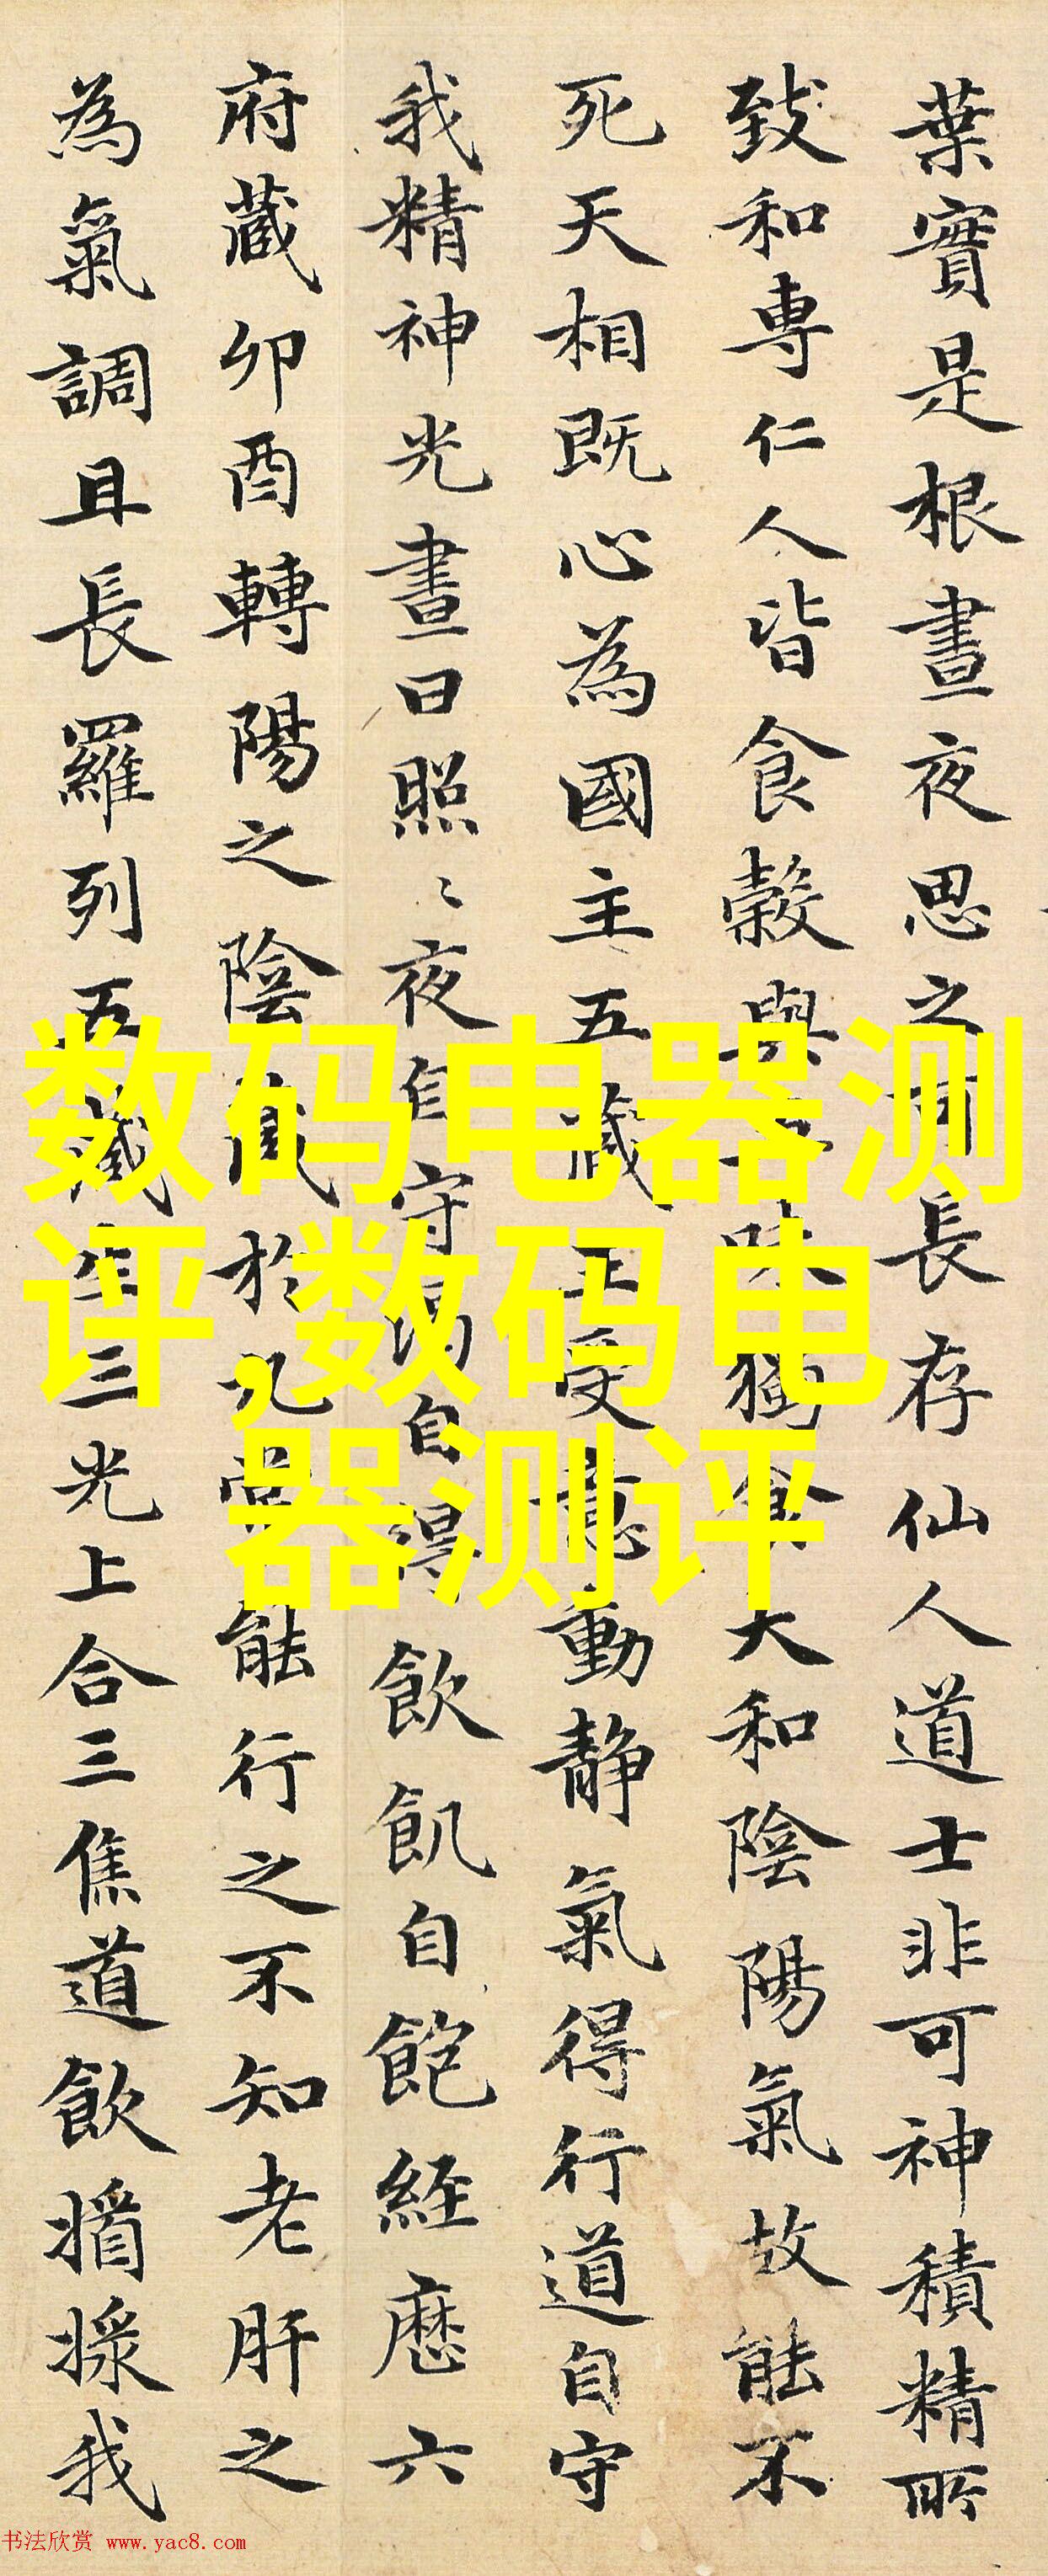 葉實是根晝夜思之可長存仙人道士非可神積精所
致和專仁人皆食穀與五味獨食大和陰陽氣故能不
死天相既心為國主五藏王受意動静氣得行道自守
我精神光晝日照〻夜自守渴自得飲飢自飽經歷六
府藏卯酉轉陽之陰藏於九常能行之不知老肝之
為氣調且長羅列五藏生三光上合三焦道飲
我
数码电器测
评,数码电
器测评
书法欣赏 www.yac8.com